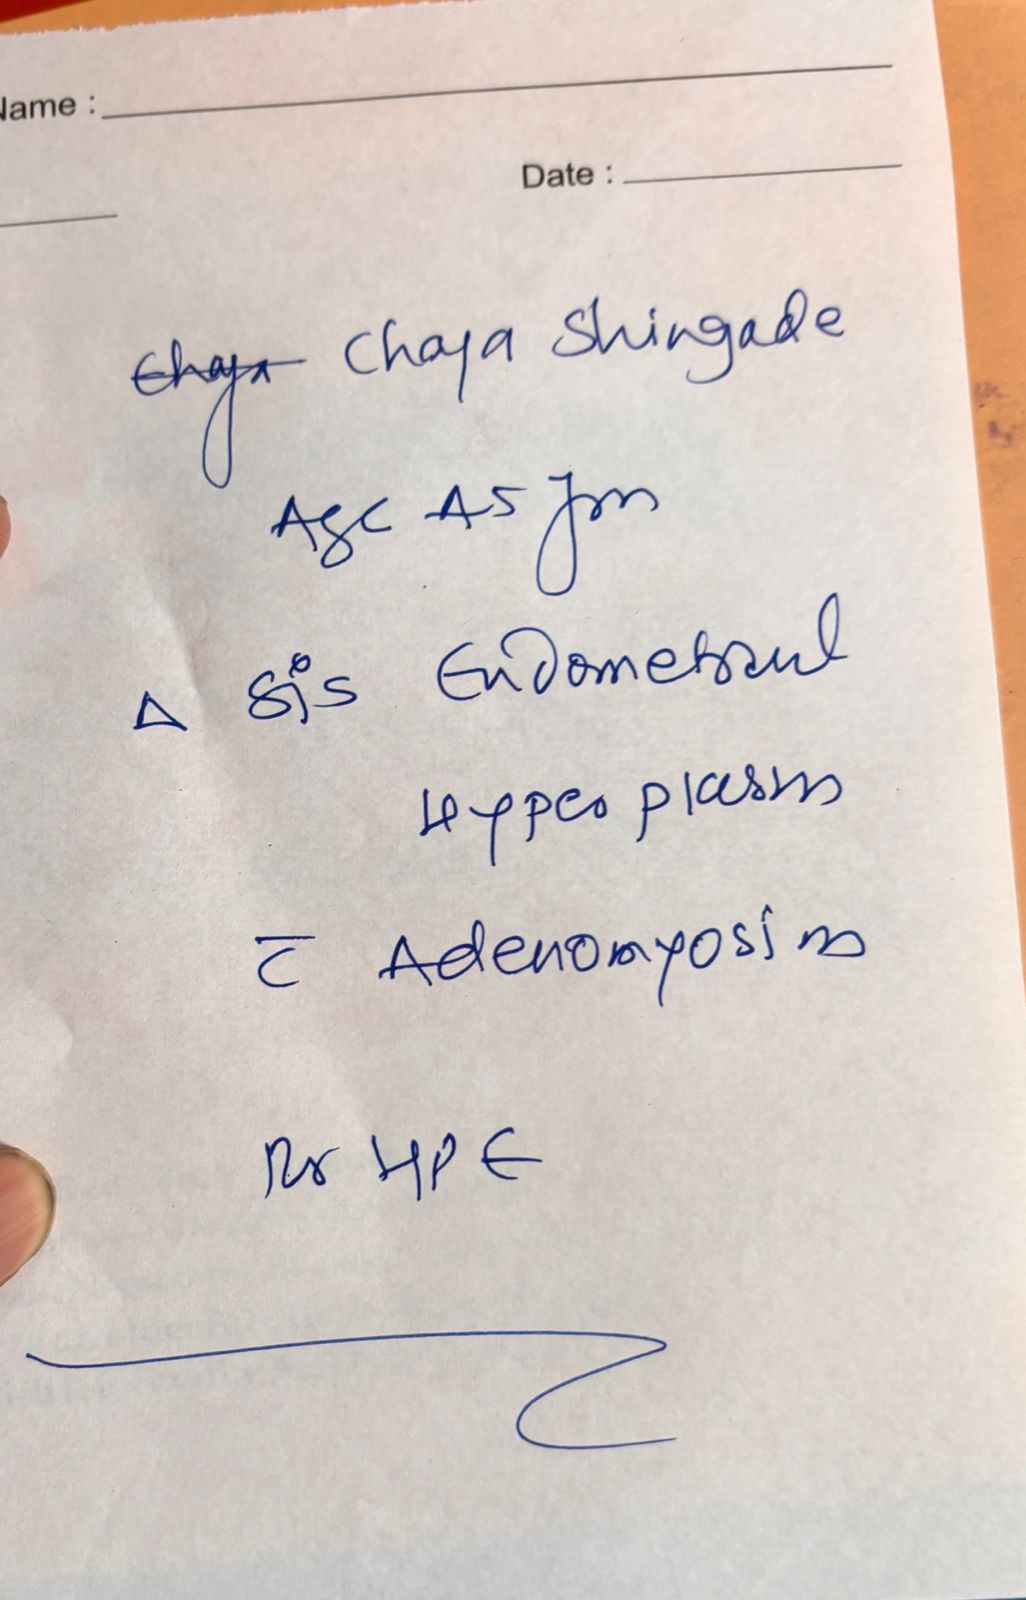 Name :
Date :
Chaya Chaya Shingade
Age 45 yrs
Δ S/S Endometrial
Hyperplasia
c̄ Adenomyosis
HPE